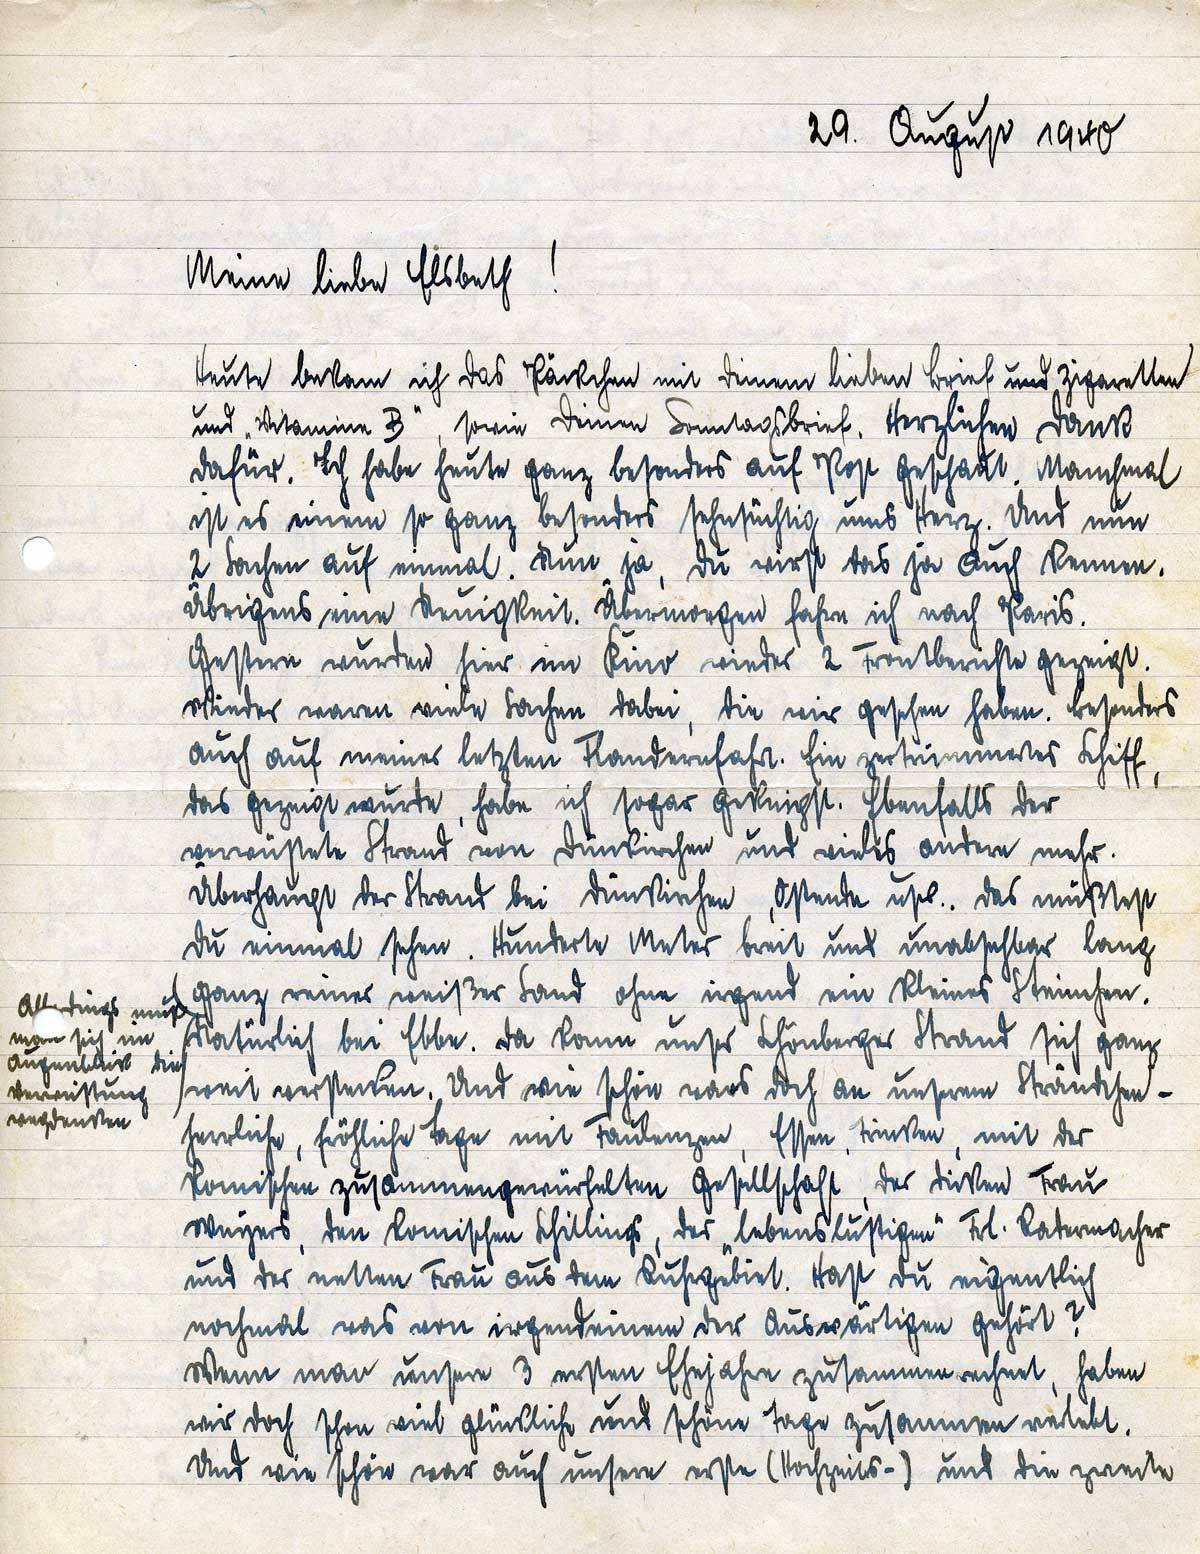 29. August 1940
Meine liebe Elsbeth!
Heute bekam ich das Päckchen mit Deinem lieben Brief und Zigaretten
und „Vitamine B“, sowie Deinen Sonntagsbrief. Herzlichen Dank
dafür. Ich habe heute ganz besonders auf Post geschaut. Manchmal
ist es einem so ganz besonders sehnsüchtig ums Herz. Und nun
2 Sachen auf einmal. Nun ja, Du wirst das ja auch kennen.
Übrigens eine Neuigkeit. Übermorgen fahre ich nach Paris.
Gestern wurden hier im Kino wieder 2 Frontberichte gezeigt.
Wieder waren viele Sachen dabei, die wir gesehen haben. Besonders
auch auf meiner letzten Flandernfahrt. Ein zertrümmertes Schiff,
das gezeigt wurde, habe ich sogar geknipst. Ebenfalls der
verwüstete Strand von Dünkirchen und vieles andere mehr.
Überhaupt der Strand bei Dünkirchen, Ostende usw.. Das müßtest
Du einmal sehen. Hunderte Meter breit und unabsehbar lang
ganz reiner weißer Sand ohne irgend ein kleines Steinchen.
Allerdings muß
man sich im
Augenblick die
Verwüstung
wegdenken
Natürlich bei Ebbe. Da kann unser Schönberger Strand sich ganz
weit verstecken. Und wie schön wars doch an unserem Strändchen -
herrliche, fröhliche Tage mit Faulenzen, Essen, Trinken, mit der
komischen zusammengewürfelten Gesellschaft, der dicken Frau
Weyers, den komischen Schillings, der „lebenslustigen“ Frl. Radermacher
und der netten Frau aus dem Ruhrgebiet. Hast Du eigentlich
nochmal was von irgendeinem der Auswärtigen gehört?
Wenn man unsere 3 ersten Ehejahre zusammenrechnet, haben
wir doch schon viel glückliche und schöne Tage zusammen verlebt.
Und wie schön war auch unsere erste (Hochzeits-) und die zweite